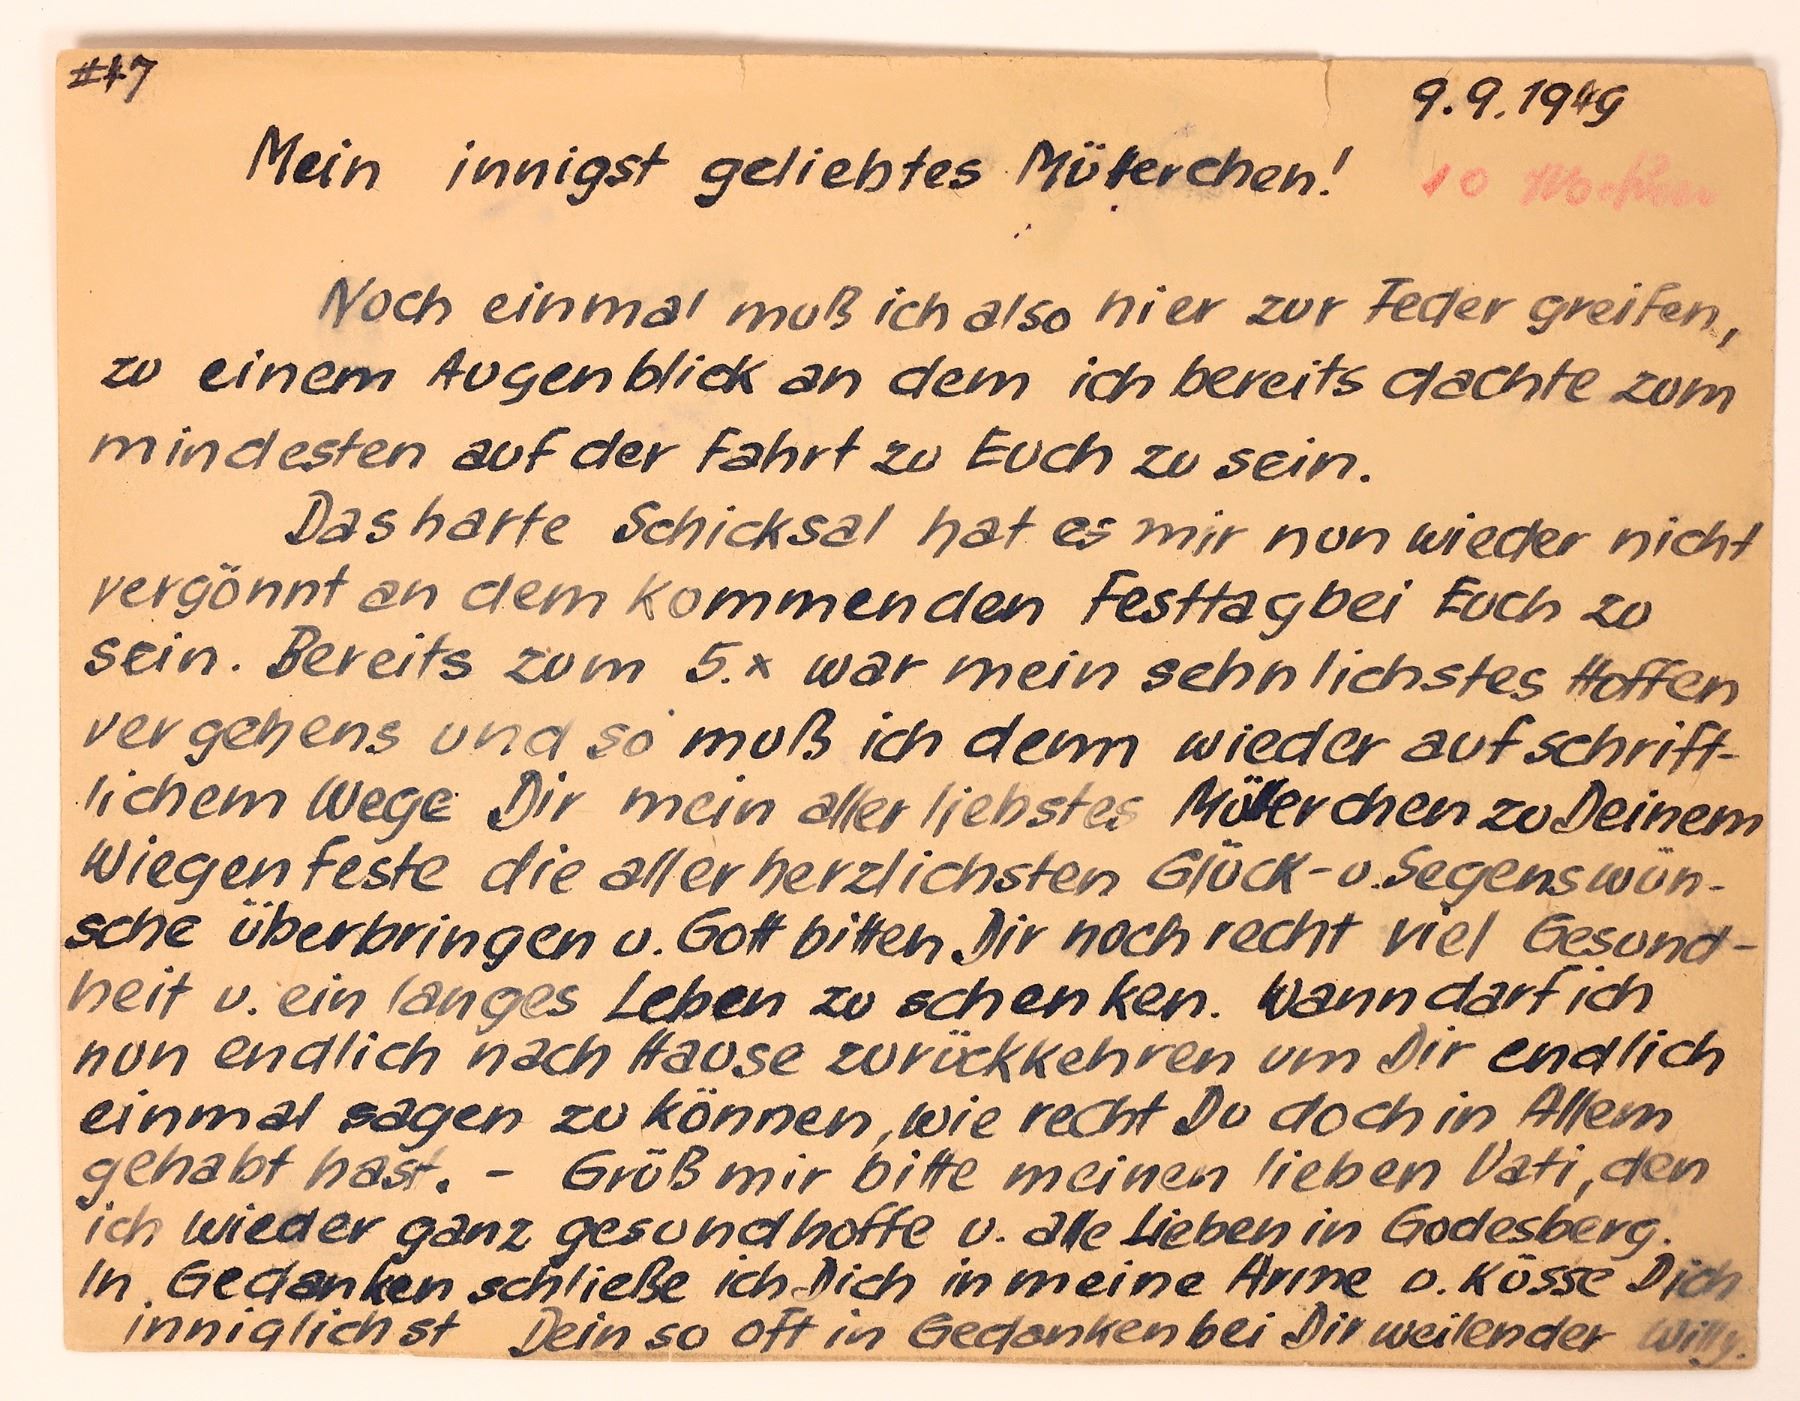 #47
9.9.1949
Mein innigst geliebtes Mütterchen!
10 Wochen
Noch einmal muß ich also hier zur Feder greifen,
zu einem Augenblick an dem ich bereits dachte zum
mindesten auf der Fahrt zu Euch zu sein.
Das harte Schicksal hat es mir nun wieder nicht
vergönnt an dem kommenden Festtag bei Euch zu
sein. Bereits zum 5.x war mein sehnlichstes Hoffen
vergehens und so muß ich denn wieder auf schrift-
lichem Wege Dir mein allerliebstes Mütterchen zu Deinem
Wiegenfeste die allerherzlichsten Glück- u. Segenswün-
sche überbringen u. Gott bitten Dir noch recht viel Gesund-
heit u. ein langes Leben zu schenken. Wann darf ich
nun endlich nach Hause zurückkehren um Dir endlich
einmal sagen zu können, wie recht Du doch in Allem
gehabt hast. - Grüß mir bitte meinen lieben Vati, den
ich wieder ganz gesund hoffe u. alle Lieben in Godesberg.
In Gedanken schließe ich Dich in meine Arme u. küsse Dich
inniglichst Dein so oft in Gedanken bei Dir weilender Willy.